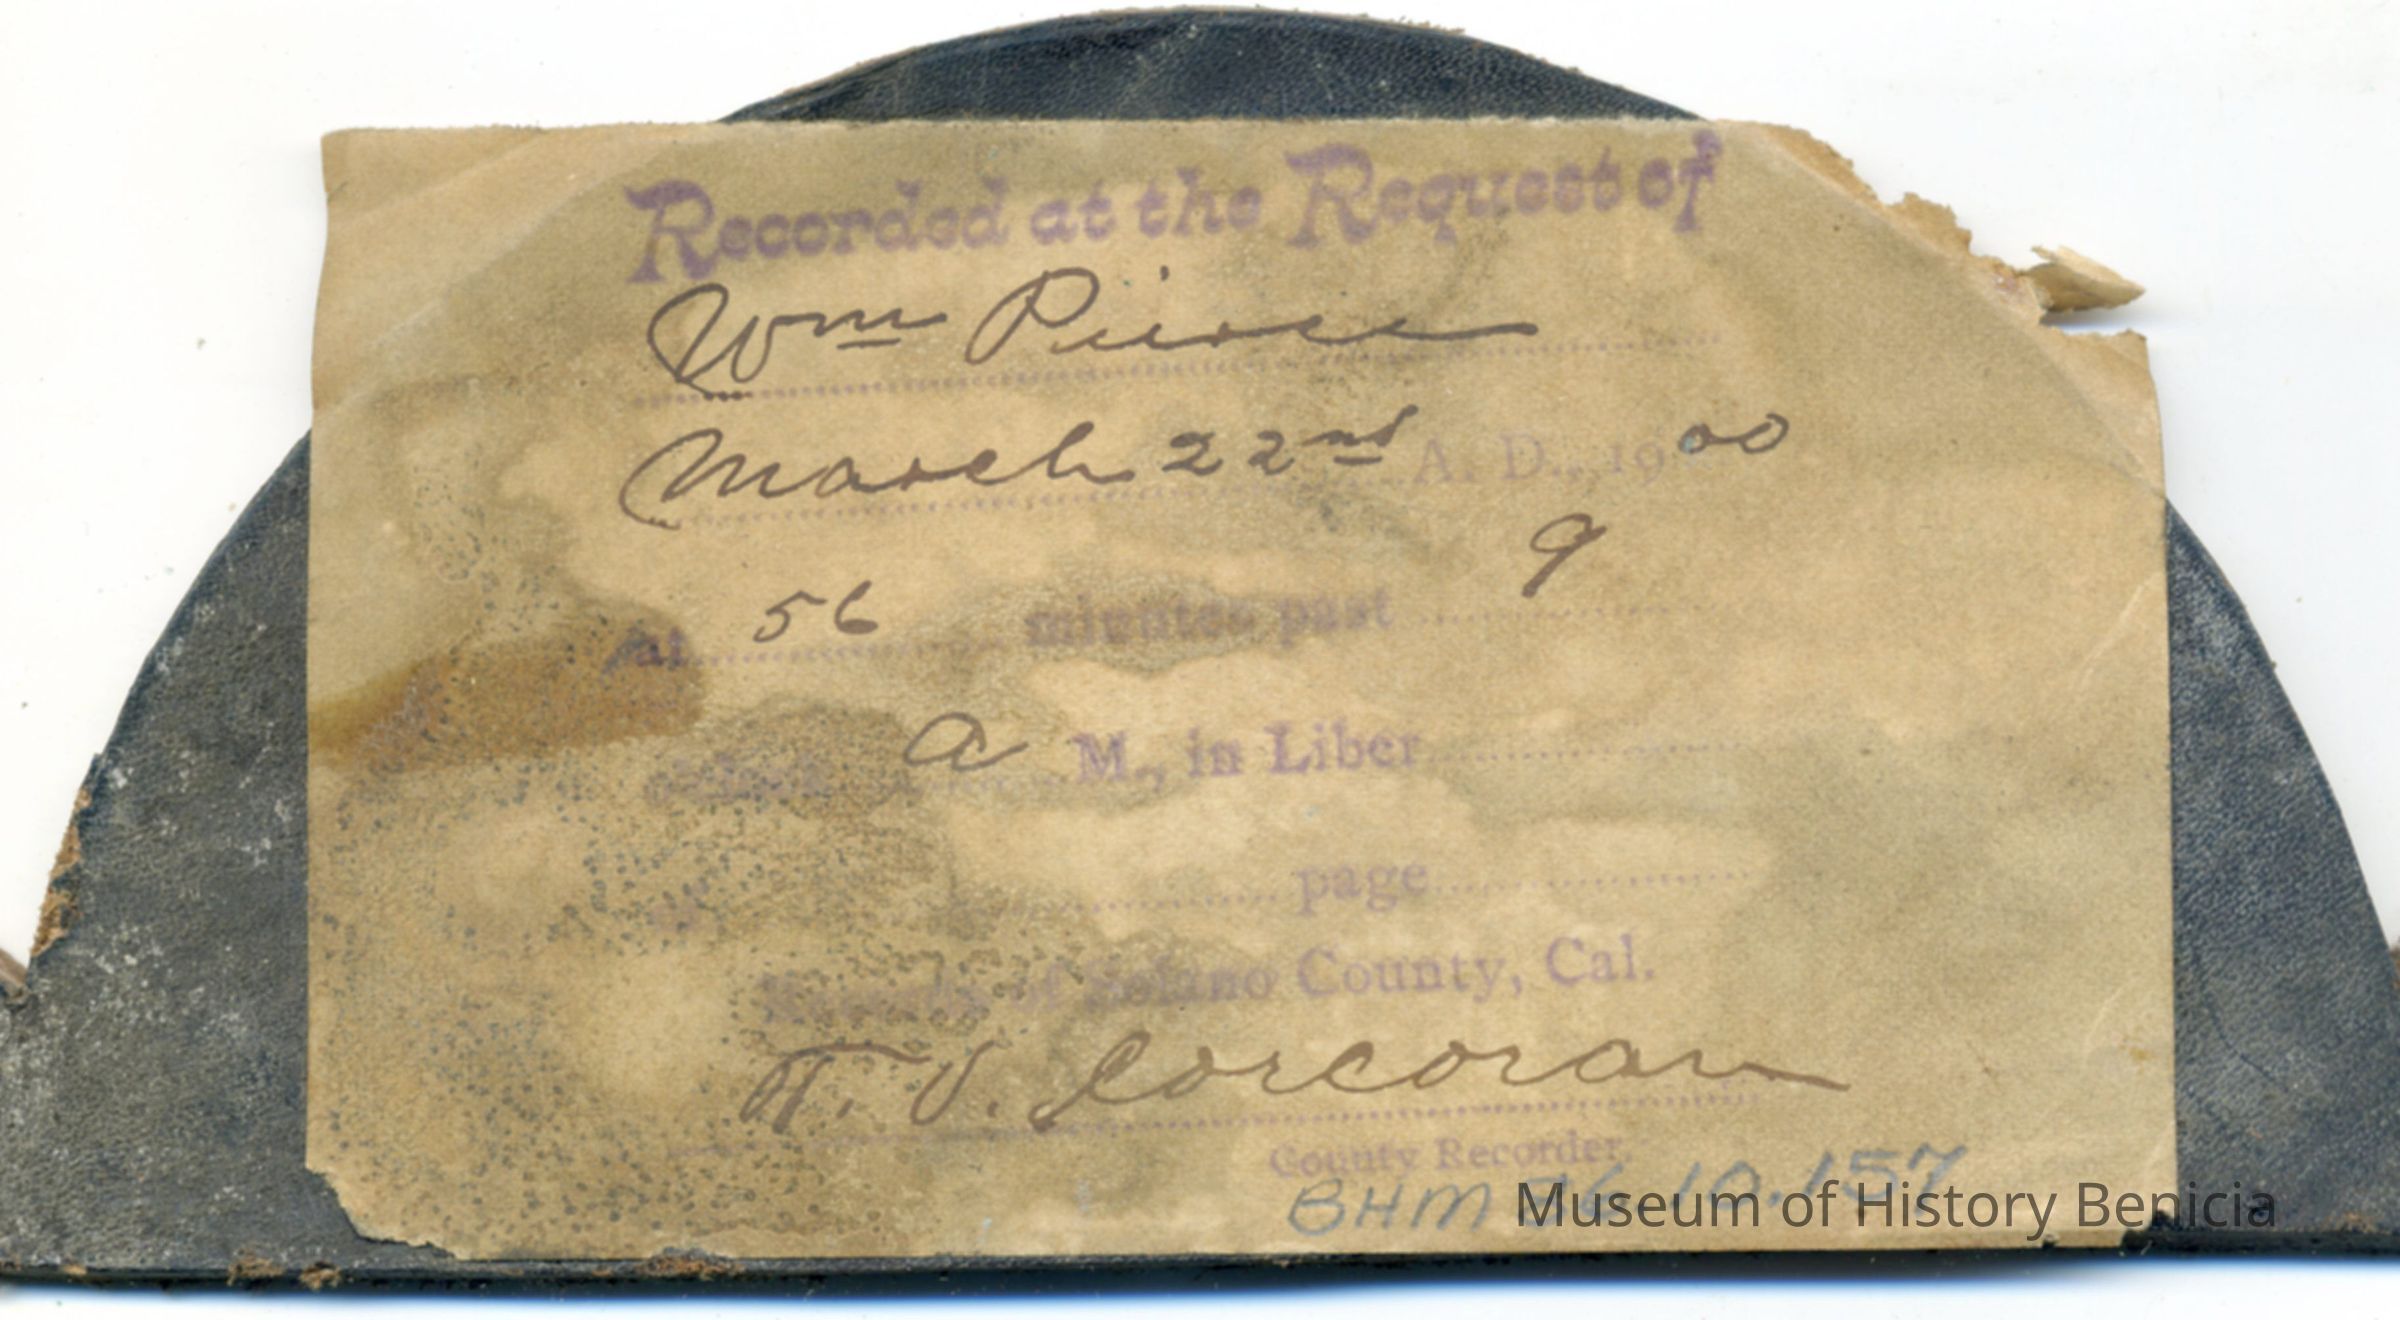 Recorded at the Request of
Wm Pierce
March 22nd A. D., 1900
at 56 minutes past 9
o'clock a M., in Liber
of page
Records of Solano County, Cal.
T. J. Corcoran
County Recorder.
BHM 86.10.157
Museum of History Benicia